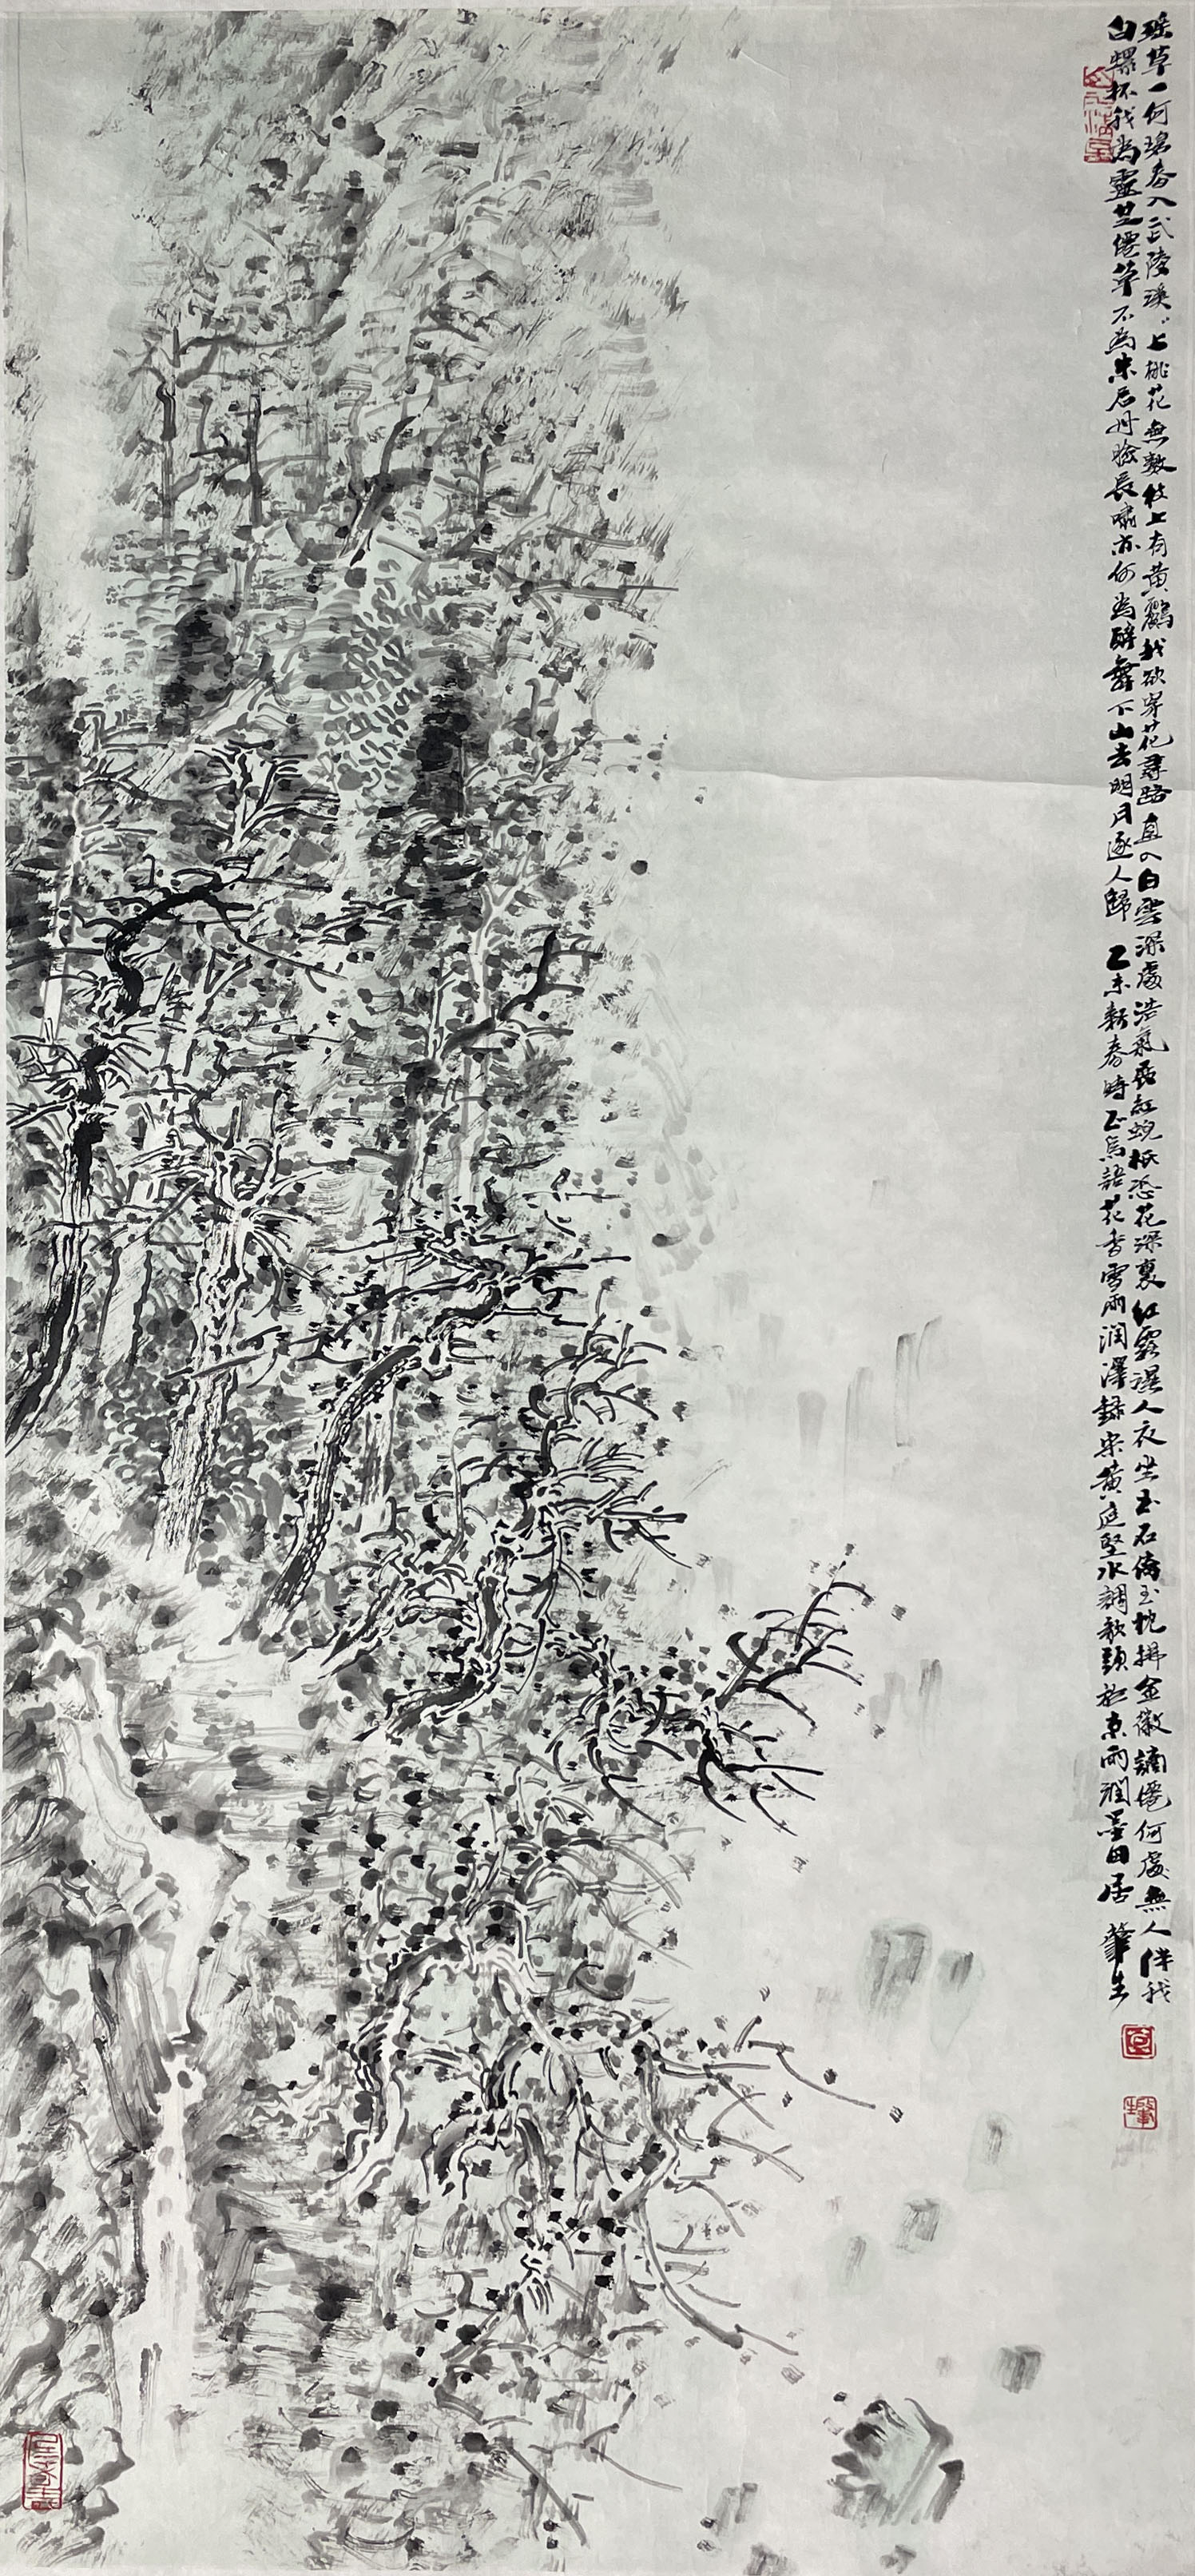 瑶草一何碧春入武陵溪〻上桃花無數枝上有黄鸝我欲穿花尋路直入白雲深處浩氣展虹蜺祇恐花深裏紅露濕人衣坐玉石倚玉枕拂金徽謫僊何處無人伴我
白螺杯我為靈芝僊草不為朱唇丹臉長嘯亦何為醉舞下山去明月逐人歸 乙未新春時正鳥語花香雪雨润澤録宋黄庭堅水調歌頭於京雨潤墨田居 肇生